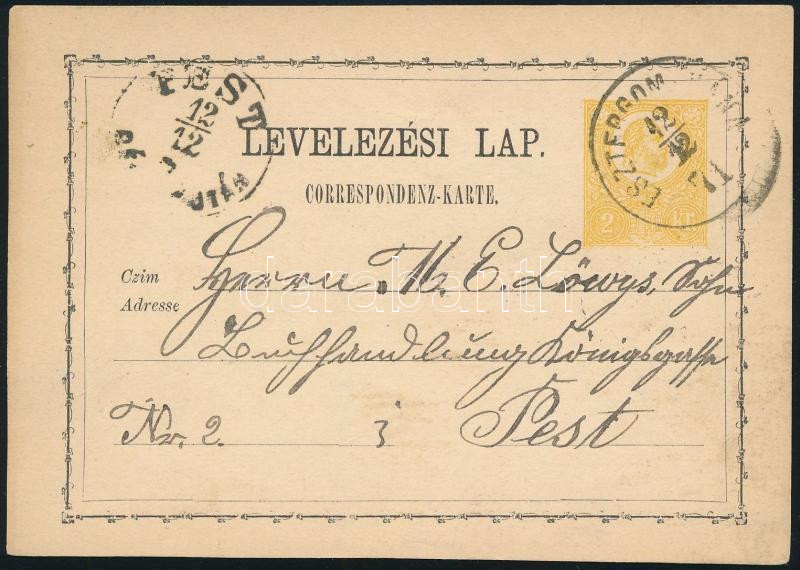 PEST
12/12
LEVELEZÉSI LAP.
CORRESPONDENZ-KARTE.
ESZTERGOM
12/12
71
2 kr
Czim
Adresse
Herrn M. E. Löwys, Sohn
Buchhandlung Königsgasse
Nr. 2.
Pest
darabanth